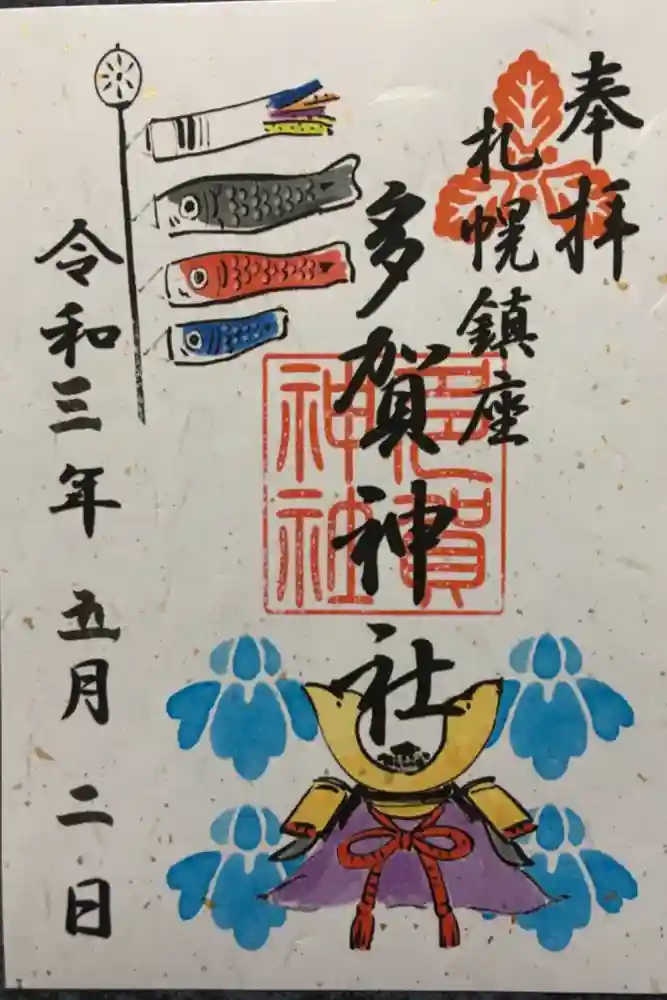 奉拝
札幌鎮座
多賀神社
多賀
神社
令和三年五月二日